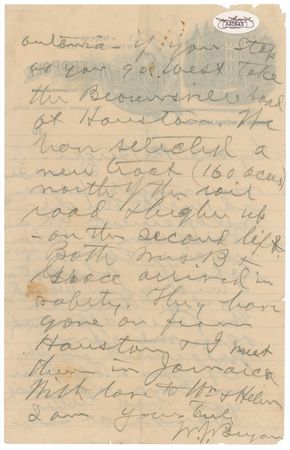 antonio - If you stop
as you go west take
the Brownsville road
at Houston. We
have selected a
new tract (160 acres)
north of the rail
road & higher up
- on the second lift.
Both Mrs B &
Grace arrived in
safety. They have
gone on from
Houston & I meet
them in Jamaica
With love to Wm & Helen
I am Yours Truly
W J Bryan